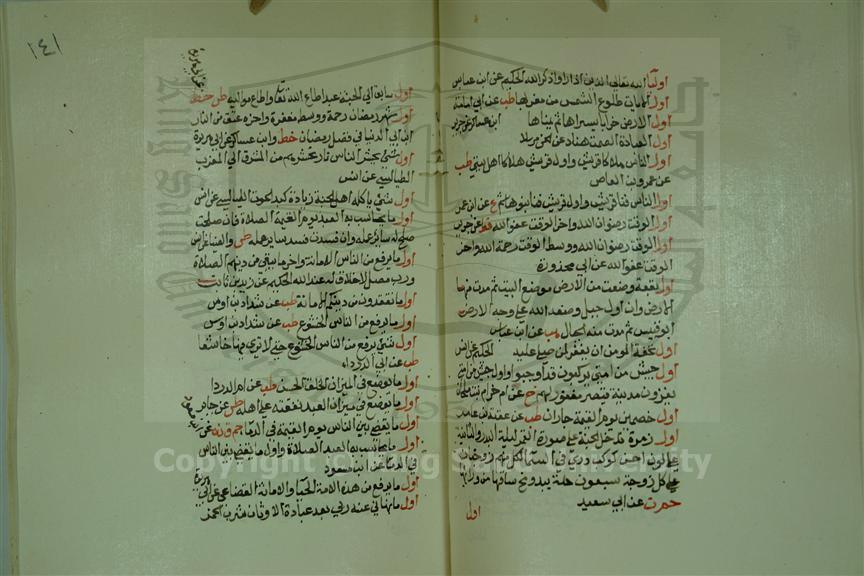 أولياء الله تعالى الذين اذا رأوا ذكر الله الحكيم عن ابن عباس
أول الآيات طلوع الشمس من مغربها طب عن أبي امامة
أول الارض خرابا يسراها ثم يمناها ابن عساكر عن جرير
أول العبادة الصمت هناد عن الحسن مرسلا
أول الناس هلاكا قريش واول قريش هلاكا اهل بيتي طب
عن عمرو بن العاص
أول الناس فناء قريش واول قريش فناء بنو هاشم ع عن ابن عمرو
أول الوقت رضوان الله واخر الوقت عفو الله قط عن جرير
أول الوقت رضوان الله ووسط الوقت رحمة الله واخر
الوقت عفو الله عن أبي محذورة
أول بقعة وضعت من الارض موضع البيت ثم مدت منها
الارض وان اول جبل وضعه الله على وجه الارض
ابو قبيس ثم مدت منه الجبال هب عن ابن عباس
أول تحفة المؤمن ان يغفر لمن صلى عليه الحكيم عن انس
أول جيش من امتي يركبون قد اوجبوا واول جيش من امتي
يغزون مدينة قيصر مغفور لهم خ عن ام حرام بنت ملحان
أول خصمين يوم القيمة جاران طب عن عقبة بن عامر
أول زمرة تدخل الجنة على صورة القمر ليلة البدر والثانية
على لون احسن كوكب دري في السماء لكل منهم زوجتان
على كل زوجة سبعون حلة يبدو مخ ساقها من ورائها
حم ت عن ابي سعيد
أول
١٤١
أول سابق الى الجنة عبد اطاع الله تعالى واطاع مواليه طس خط
عن ابي هريرة
أول شهر رمضان رحمة ووسطه مغفرة واخره عتق من النار
ابن ابي الدنيا في فضل رمضان خط وابن عساكر عن ابي هريرة
أول شئ يحشر الناس نار تحشرهم من المشرق الى المغرب
الطيالسي عن انس
أول شئ ياكله اهل الجنة زيادة كبد الحوت الطيالسي عن انس
أول ما يحاسب به العبد يوم القيمة الصلاة فان صلحت
صلح له سائر عمله وان فسدت فسد سائر عمله طس والضياء عن انس
أول ما يرفع من الناس الامانة واخر ما يبقى من دينهم الصلاة
ورب مصل لا خلاق له عند الله الحكيم عن زيد بن ثابت
أول ما تفقدون من دينكم الامانة طب عن شداد بن اوس
أول ما يرفع من الناس الخشوع طب عن شداد بن اوس
أول شئ يرفع من الناس الخشوع حتى لا ترى فيها خاشعا
طب عن ابي الدرداء
أول ما يوضع في الميزان الخلق الحسن طب عن ام الدردا
أول ما يوضع في ميزان العبد نفقته على اهله طس عن جابر
أول ما يقضى بين الناس يوم القيمة في الدما حم ق ن ه عن
ابن مسعود
أول ما يحاسب به العبد الصلاة واول ما يقضى بين الناس
في الدما ن عن ابن مسعود
أول ما يرفع من هذه الامة الحياء والامانة القضاعي عن ابي
هريرة
أول ما نهاني عنه ربي بعد عبادة الاوثان شرب الخمر
Copyright © King Saud University